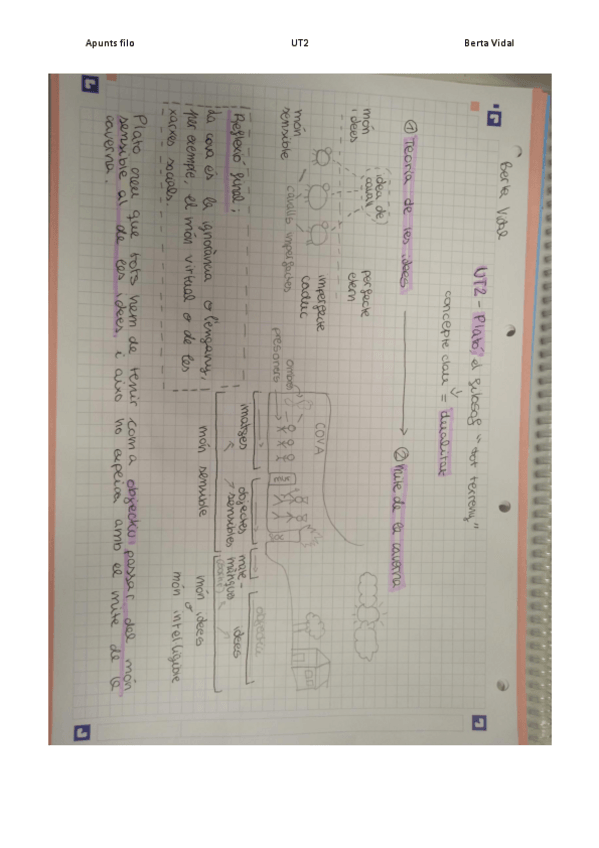 Apunts filo UT2 Berta Vidal
Berta Vidal
UT2 - Plató el filòsof "tot terreny"
concepte clau = dualitat
① Teoria de les idees → ② Mite de la caverna
món idees
idea de cavall
perfecte
etern
món sensible
cavalls imperfectes
imperfecte
caduc
COVA
ombres
presoners
imatges
objectes sensibles
mate-
màtiques
idees
objectiu
món sensible
món idees
o
món intel·ligible
Reflexió final:
La cova és la ignorància o l'engany,
per exemple, el món virtual o de les
xarxes socials.
Plató creu que tots hem de tenir com a objectiu passar del món
sensible al de les idees, i això ho explica amb el mite de la
caverna.